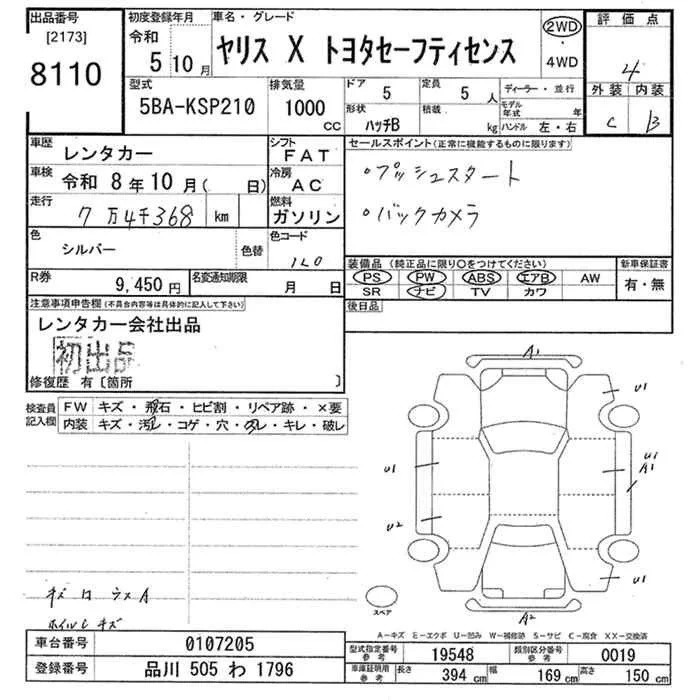 出品番号 初度登録年月 車名・グレード 評価点
[2173] 令和 ヤリス X トヨタセーフティセンス 2WD ・ 4WD
8110 5 10月 4
型式 排気量 ドア 定員 ディーラー・並行 外装 内装
5BA-KSP210 1000 cc 5 5人 モデル年式 年 C B
形状 積載 ハンドル 左・右
ハッチB kg
車歴 レンタカー シフト FAT セールスポイント(正常に機能するものに限ります)
車検 令和 8年 10月 ( 日) 冷房 AC ・プッシュスタート
走行 7万4千368 km 燃料 ガソリン ・バックカメラ
色 シルバー 色替 色コード 1L0
装備品 (純正品に限り○をつけてください) 新車保証書
R券 9,450円 名変通知期限 月 日 PS PW ABS エアB AW 有・無
SR ナビ TV カワ
注意事項申告欄(不具合内容等は具体的に記入して下さい) 後日品
レンタカー会社出品
初出品
修復歴 有〔箇所 〕
検査員記入欄 FW キズ・飛石・ヒビ割・リペア跡・×要
内装 キズ・汚レ・コゲ・穴・スレ・キレ・破レ
A1
U1
U1
U1
A1
U2
U1
A2
スペア
ホイルCキズ
A-キズ E-エクボ U-凹み W-補修跡 S-サビ C-腐食 XX-交換済
車台番号 0107205 型式指定番号参考 19548 類別区分番号参考 0019
登録番号 品川 505 わ 1796 車庫証明用参考 長さ 394 cm 幅 169 cm 高さ 150 cm